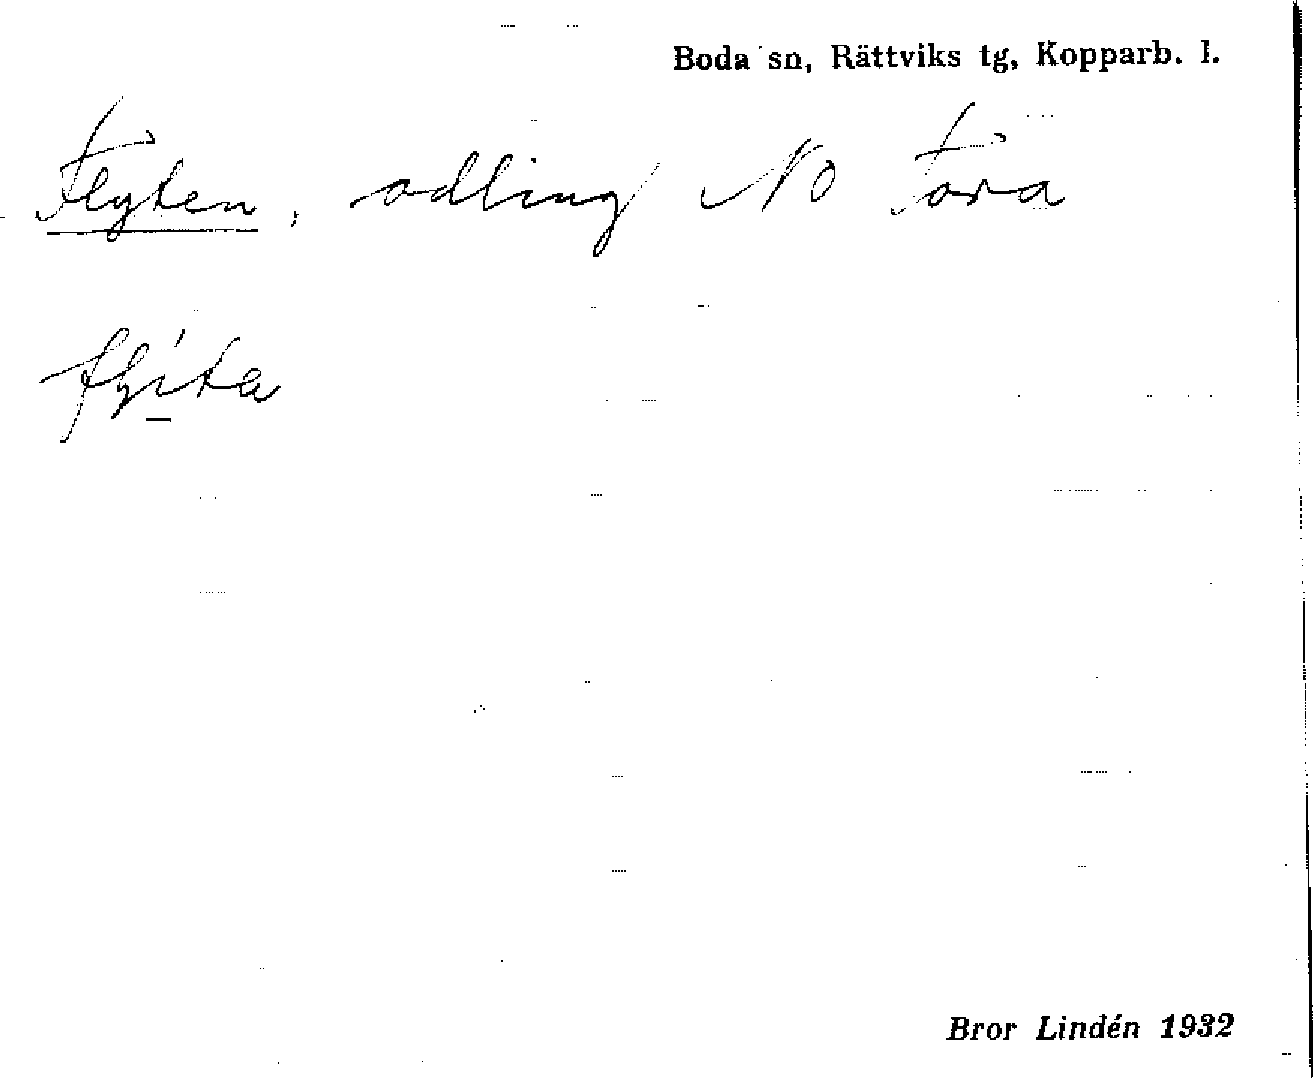 Boda sn, Rättviks tg, Kopparb. l.
Flyten, odling NO Fora
Bror Lindén 1932